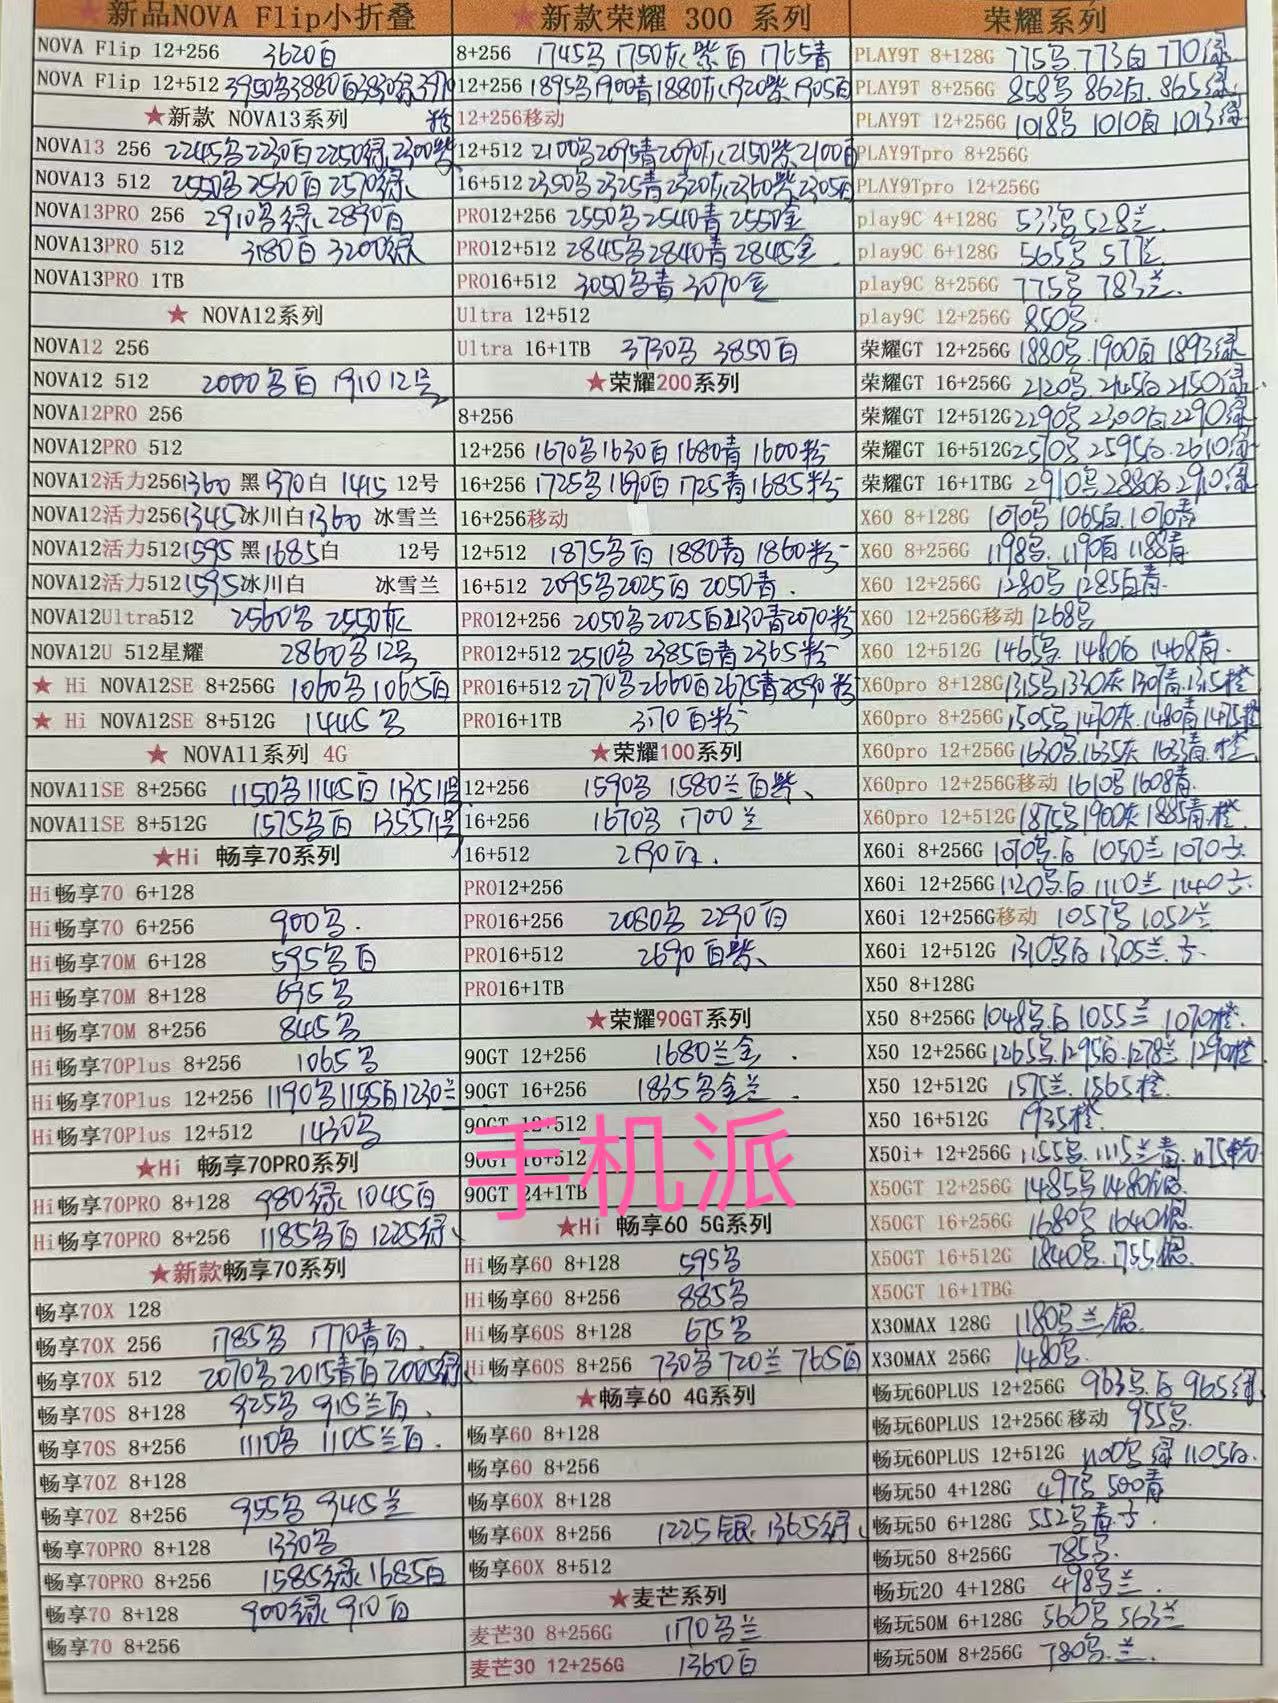 ★新品NOVA Flip小折叠
NOVA Flip 12+256 3620白
NOVA Flip 12+512 3950黑3880白3830绿3970粉
★新款 NOVA13系列
NOVA13 256 2245黑2230白2250绿2300紫
NOVA13 512 2550黑2530白2570绿
NOVA13PRO 256 2910黑绿2890白
NOVA13PRO 512 3180白3200绿
NOVA13PRO 1TB
★ NOVA12系列
NOVA12 256
NOVA12 512 2000黑白 1910 12号
NOVA12PRO 256
NOVA12PRO 512
NOVA12活力256 1360 黑1370白 1415 12号
NOVA12活力256 1345冰川白1360 冰雪兰
NOVA12活力512 1595黑1685白 12号
NOVA12活力512 1595冰川白 冰雪兰
NOVA12Ultra512 2560黑 2550灰
NOVA12U 512星耀 2860黑12号
★ Hi NOVA12SE 8+256G 1060黑1065白
★ Hi NOVA12SE 8+512G 1445黑
★ NOVA11系列 4G
NOVA11SE 8+256G 1150黑1145白1135 11号
NOVA11SE 8+512G 1575黑白 1355 11号
★Hi 畅享70系列
Hi畅享70 6+128
Hi畅享70 6+256 900黑.
Hi畅享70M 6+128 595黑白
Hi畅享70M 8+128 695黑
Hi畅享70M 8+256 845黑
Hi畅享70Plus 8+256 1065黑
Hi畅享70Plus 12+256 1190黑1155白1230兰
Hi畅享70Plus 12+512 1430黑
★Hi 畅享70PRO系列
Hi畅享70PRO 8+128 980绿 1045白
Hi畅享70PRO 8+256 1185黑白 1225绿
★新款畅享70系列
畅享70X 128
畅享70X 256 1785黑 1770青白.
畅享70X 512 2070黑2015青白2005绿
畅享70S 8+128 925黑 915兰白.
畅享70S 8+256 1110黑 1105兰白.
畅享70Z 8+128
畅享70Z 8+256 955黑 945兰
畅享70PRO 8+128 1330黑
畅享70PRO 8+256 1585绿1685白
畅享70 8+128 900绿 910白
畅享70 8+256
★新款荣耀 300 系列
8+256 1745黑1750灰紫白1765青
12+256 1895黑1900青1880灰1920紫1905白
12+256移动
12+512 2100黑2095青2090灰2150紫2100白
16+512 2350黑2325青2320灰2360紫2305白
PRO12+256 2550黑2540青2550金
PRO12+512 2845黑2840青2845金
PRO16+512 3050黑青 3070金
Ultra 12+512
Ultra 16+1TB 3730黑 3850白
★荣耀200系列
8+256
12+256 1670黑1630白1680青1600粉
16+256 1725黑1690白1725青1685粉
16+256移动
12+512 1875黑白 1880青1860粉
16+512 2095黑2025白2050青.
PRO12+256 2050黑2025白2130青2070粉
PRO12+512 2510黑 2385白青2365粉
PRO16+512 2770黑2660白2675青2590粉
PRO16+1TB 3170白粉
★荣耀100系列
12+256 1590黑 1580兰白紫
16+256 1670黑 1700兰
16+512 2190白.
PRO12+256
PRO16+256 2080黑 2290白
PRO16+512 2690白紫
PRO16+1TB
★荣耀90GT系列
90GT 12+256 1680兰金.
90GT 16+256 1835黑金兰.
90GT 12+512
90GT 16+512
90GT 24+1TB
手机派
★Hi 畅享60 5G系列
Hi畅享60 8+128 595黑
Hi畅享60 8+256 885黑
Hi畅享60S 8+128 675黑
Hi畅享60S 8+256 730黑720兰 765白
★畅享60 4G系列
畅享60 8+128
畅享60 8+256
畅享60X 8+128
畅享60X 8+256 1225银 1365绿
畅享60X 8+512
★麦芒系列
麦芒30 8+256G 1170黑兰
麦芒30 12+256G 1360白
荣耀系列
PLAY9T 8+128G 775黑.773白770绿
PLAY9T 8+256G 858黑 862白.865绿
PLAY9T 12+256G 1018黑 1010白 1013绿
PLAY9Tpro 8+256G
PLAY9Tpro 12+256G
play9C 4+128G 533黑528兰.
play9C 6+128G 565黑 577兰
play9C 8+256G 775黑 783兰.
play9C 12+256G 850黑.
荣耀GT 12+256G 1880黑.1900白1893绿
荣耀GT 16+256G 2120黑.2145白2150绿
荣耀GT 12+512G 2290黑2300白2290绿
荣耀GT 16+512G 2570黑2595白.2610绿
荣耀GT 16+1TBG 2910黑2880白2910绿
X60 8+128G 1070黑1065白1070青
X60 8+256G 1198黑.1190白1188青
X60 12+256G 1280黑1285白青.
X60 12+256G移动 1268黑
X60 12+512G 1465黑.1480白1468青.
X60pro 8+128G 1315黑1330灰1307青1315橙
X60pro 8+256G 1505黑1470灰.1480青1475橙
X60pro 12+256G 1630黑1635灰1633青.橙
X60pro 12+256G移动 1610黑1608青
X60pro 12+512G 1875黑1900灰1885青.橙
X60i 8+256G 1070黑.白 1050兰 1070
X60i 12+256G 1120黑.白 1110兰 1140
X60i 12+256G移动 1057黑1052兰
X60i 12+512G 1310黑白1305兰.
X50 8+128G
X50 8+256G 1048黑.白1055兰 1070橙.
X50 12+256G 1265黑.1295白.1278兰.1290橙
X50 12+512G 1575兰.1565橙.
X50 16+512G 1935橙.
X50i+ 12+256G 1155黑.1115兰青.1175粉
X50GT 12+256G 1485黑1480银.
X50GT 16+256G 1680黑1640银
X50GT 16+512G 1840黑.1755银.
X50GT 16+1TBG
X30MAX 128G 1180黑兰.银
X30MAX 256G 1480黑.
畅玩60PLUS 12+256G 963黑.白965绿
畅玩60PLUS 12+256G移动 955黑.
畅玩60PLUS 12+512G 1100黑绿1105白.
畅玩50 4+128G 497黑500青
畅玩50 6+128G 552黑青.
畅玩50 8+256G 785黑.
畅玩20 4+128G 498黑兰.
畅玩50M 6+128G 560黑563兰
畅玩50M 8+256G 780黑.兰.